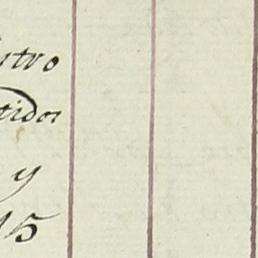 stro
tidos
y
15